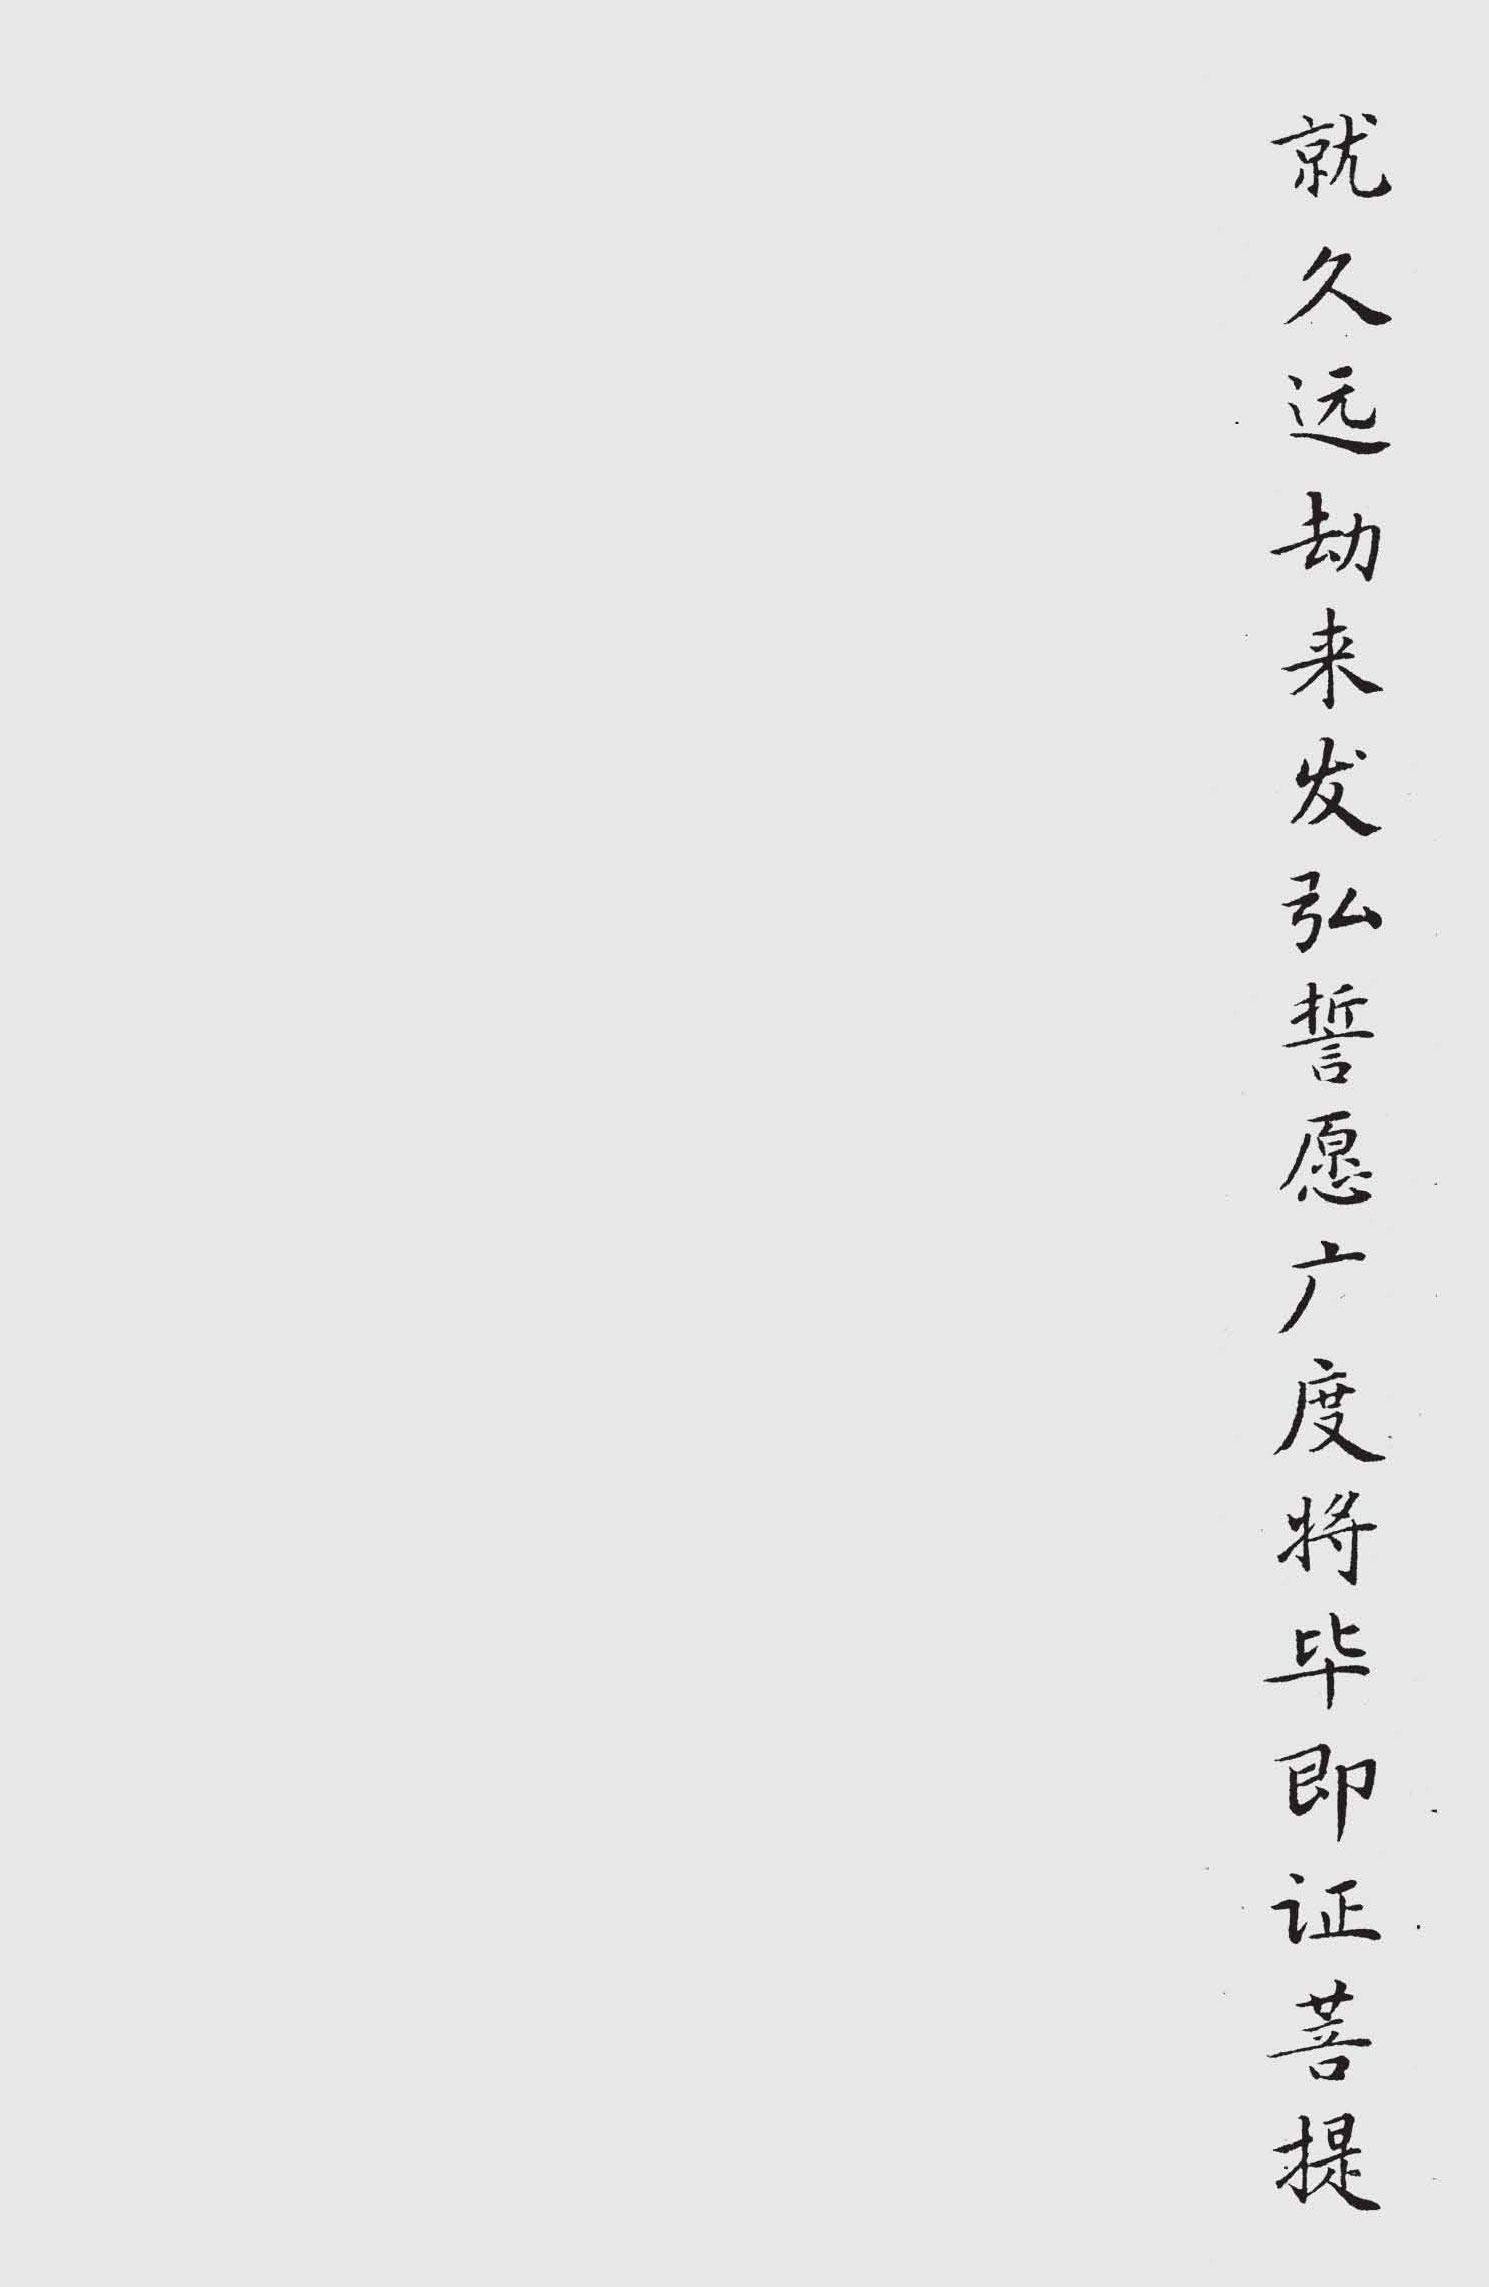 就久远劫来发弘誓愿广度将毕即证菩提